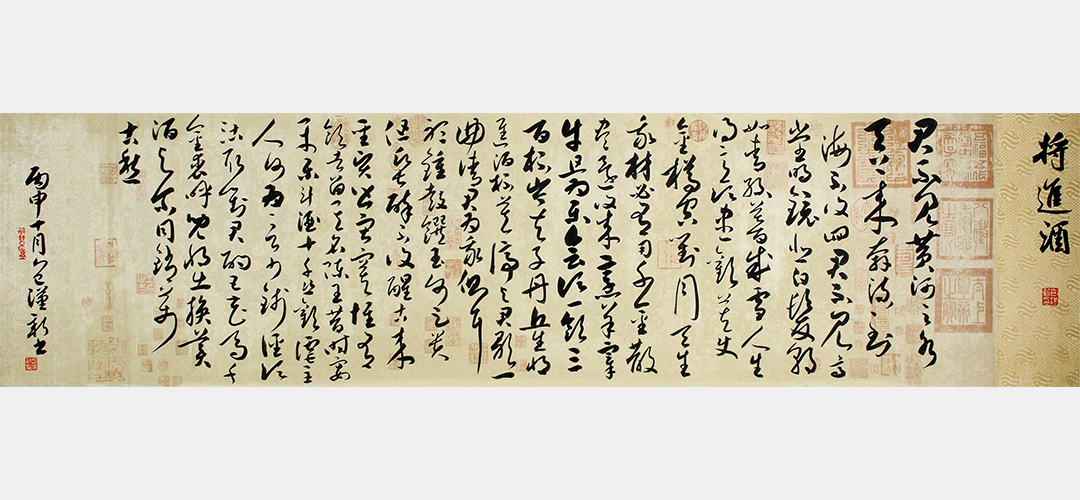 将進酒
君不見黄河之水
天上来奔流到
海不復回君不見高
堂明鏡悲白髮朝
如青絲暮成雪人生
得意須盡歡莫使
金樽空對月天生
我材必有用千金散
盡還復来烹羊宰
牛且為樂會須一飲三
百杯岑夫子丹丘生將
進酒杯莫停与君歌一
曲請君為我側耳
聽鐘鼓饌玉何足貴
但願長醉不復醒古来
聖賢皆寂寞惟有
飲者留其名陳王昔時宴
平樂斗酒十千恣歡謔主
人何為言少錢徑須
沽取對君酌五花馬千
金裘呼兒將出換美
酒与尔同銷萬
古愁
丙申十月